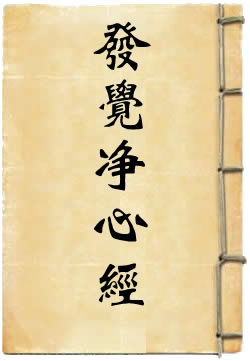 發覺净心經